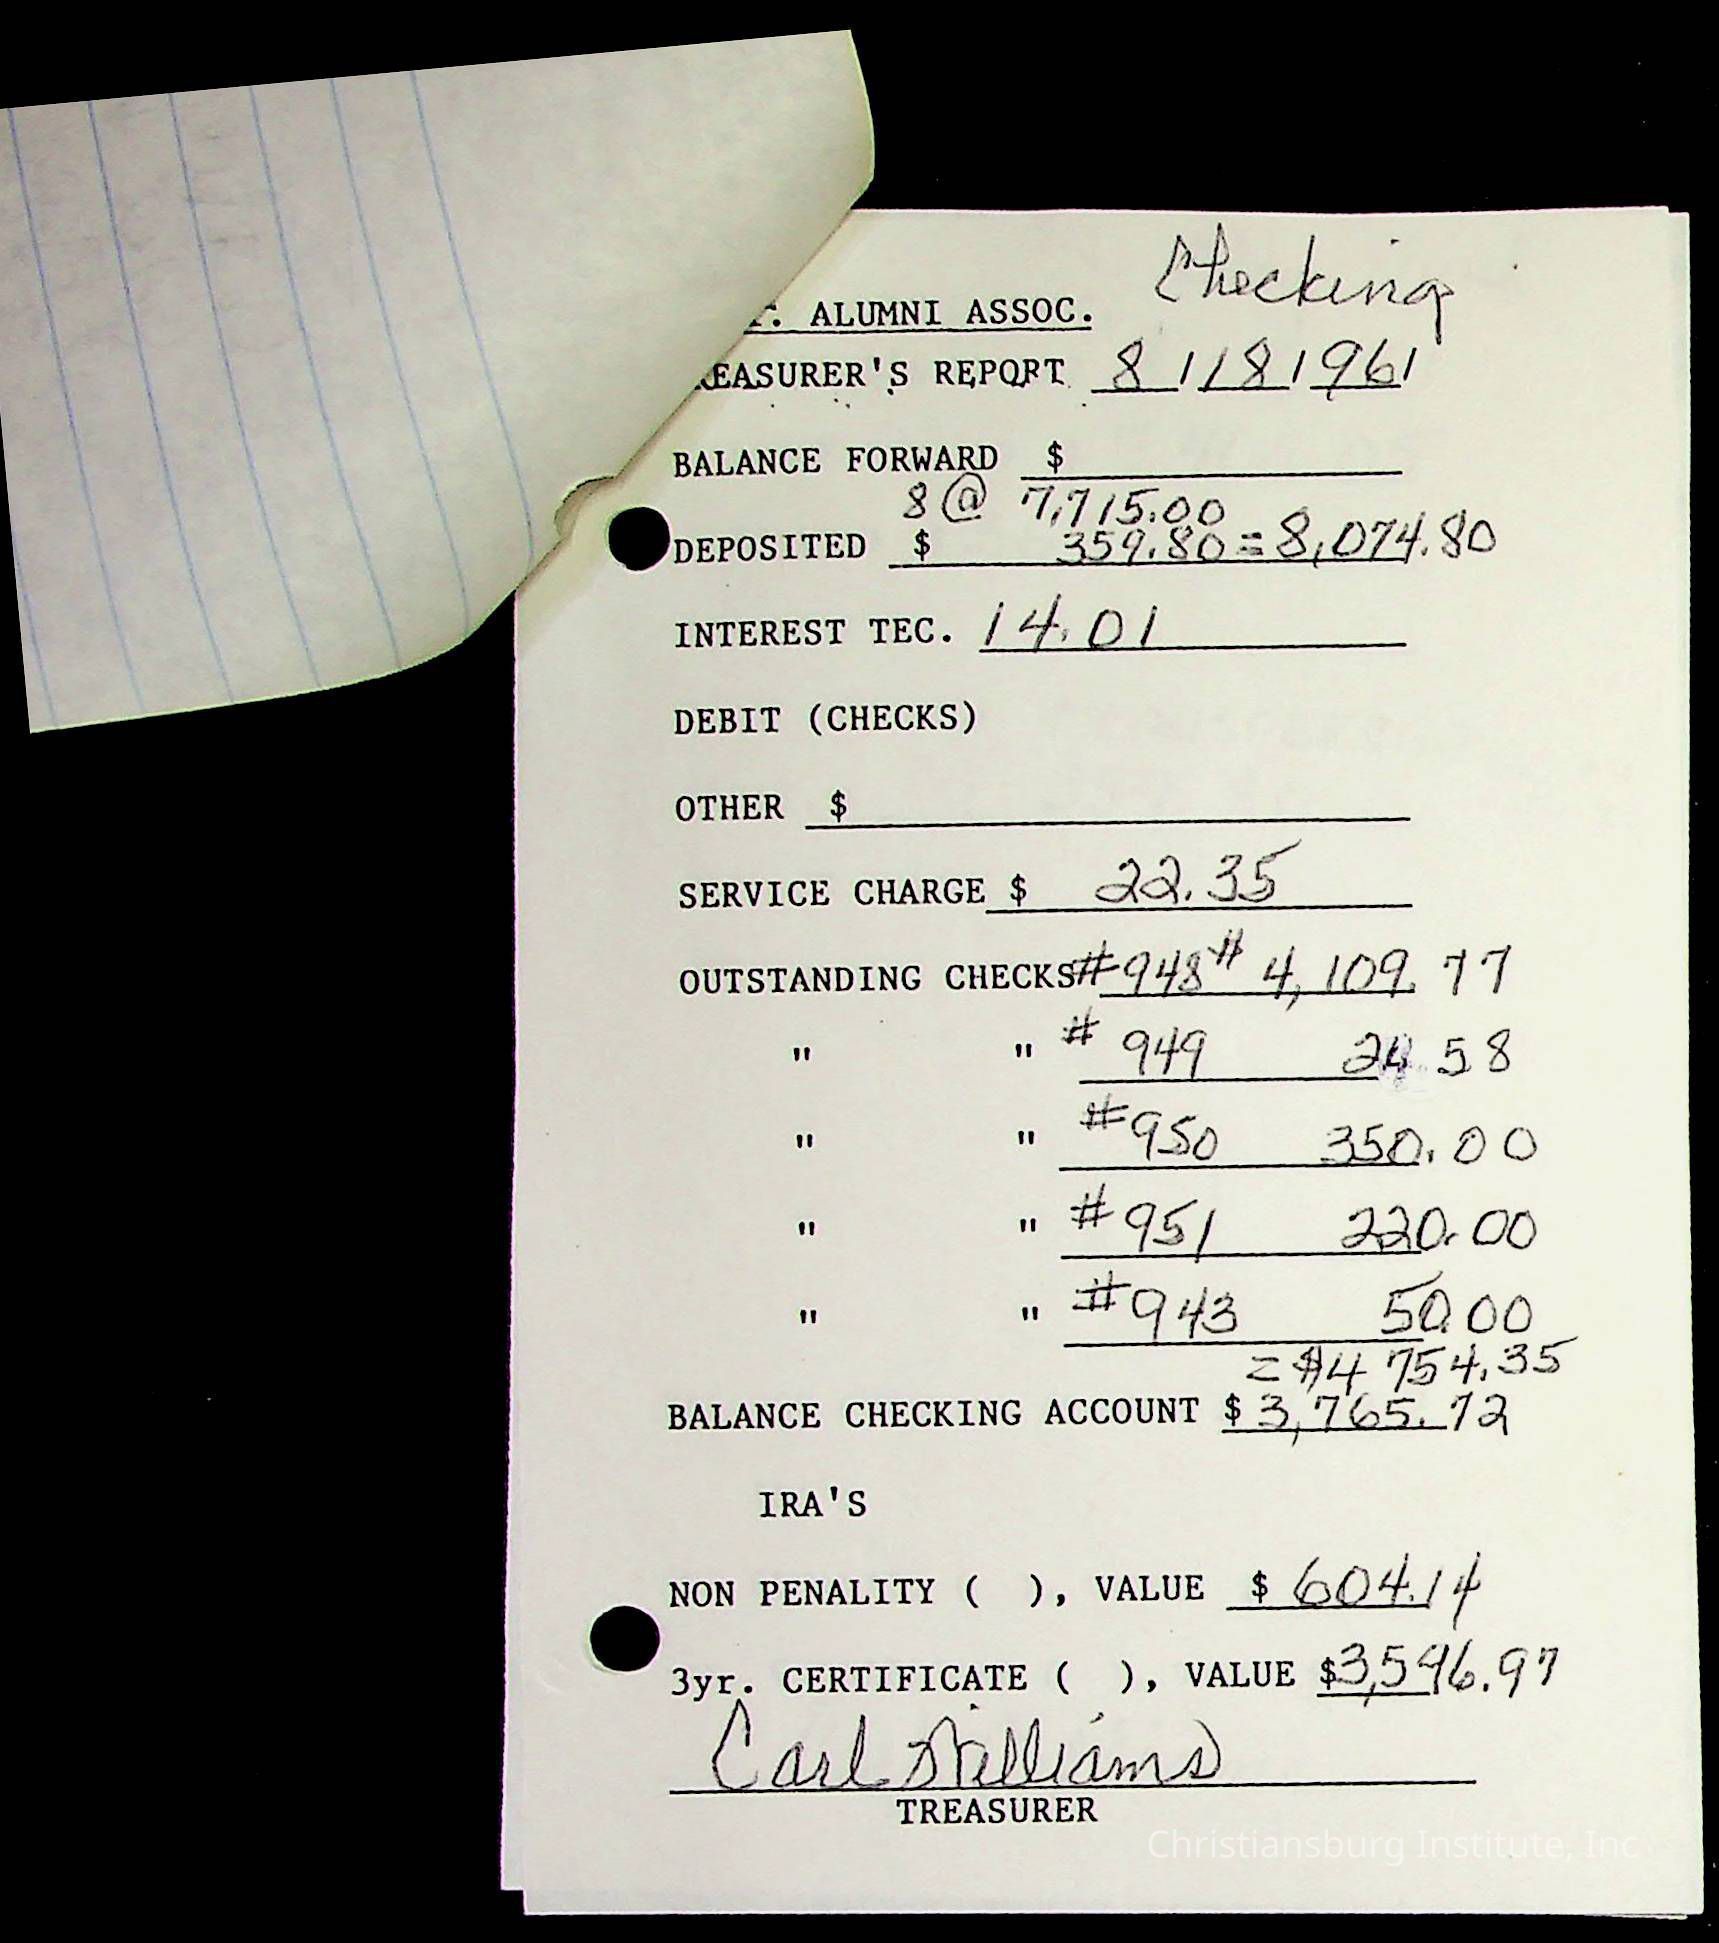 Checking
. ALUMNI ASSOC.
REASURER'S REPORT 8 / 18 / 96 /
BALANCE FORWARD $
8 @ 7,715.00
DEPOSITED $ 359.80 = 8,074.80
INTEREST TEC. 14.01
DEBIT (CHECKS)
OTHER $
SERVICE CHARGE $ 22.35
OUTSTANDING CHECKS #948 # 4,109.77
" " # 949 24.58
" " #950 350.00
" " #951 220.00
" " #943 50.00
= $4 754.35
BALANCE CHECKING ACCOUNT $ 3,765.72
IRA'S
NON PENALITY ( ), VALUE $ 604.14
3yr. CERTIFICATE ( ), VALUE $3,596.97
Carl Williams
TREASURER
Christiansburg Institute, Inc